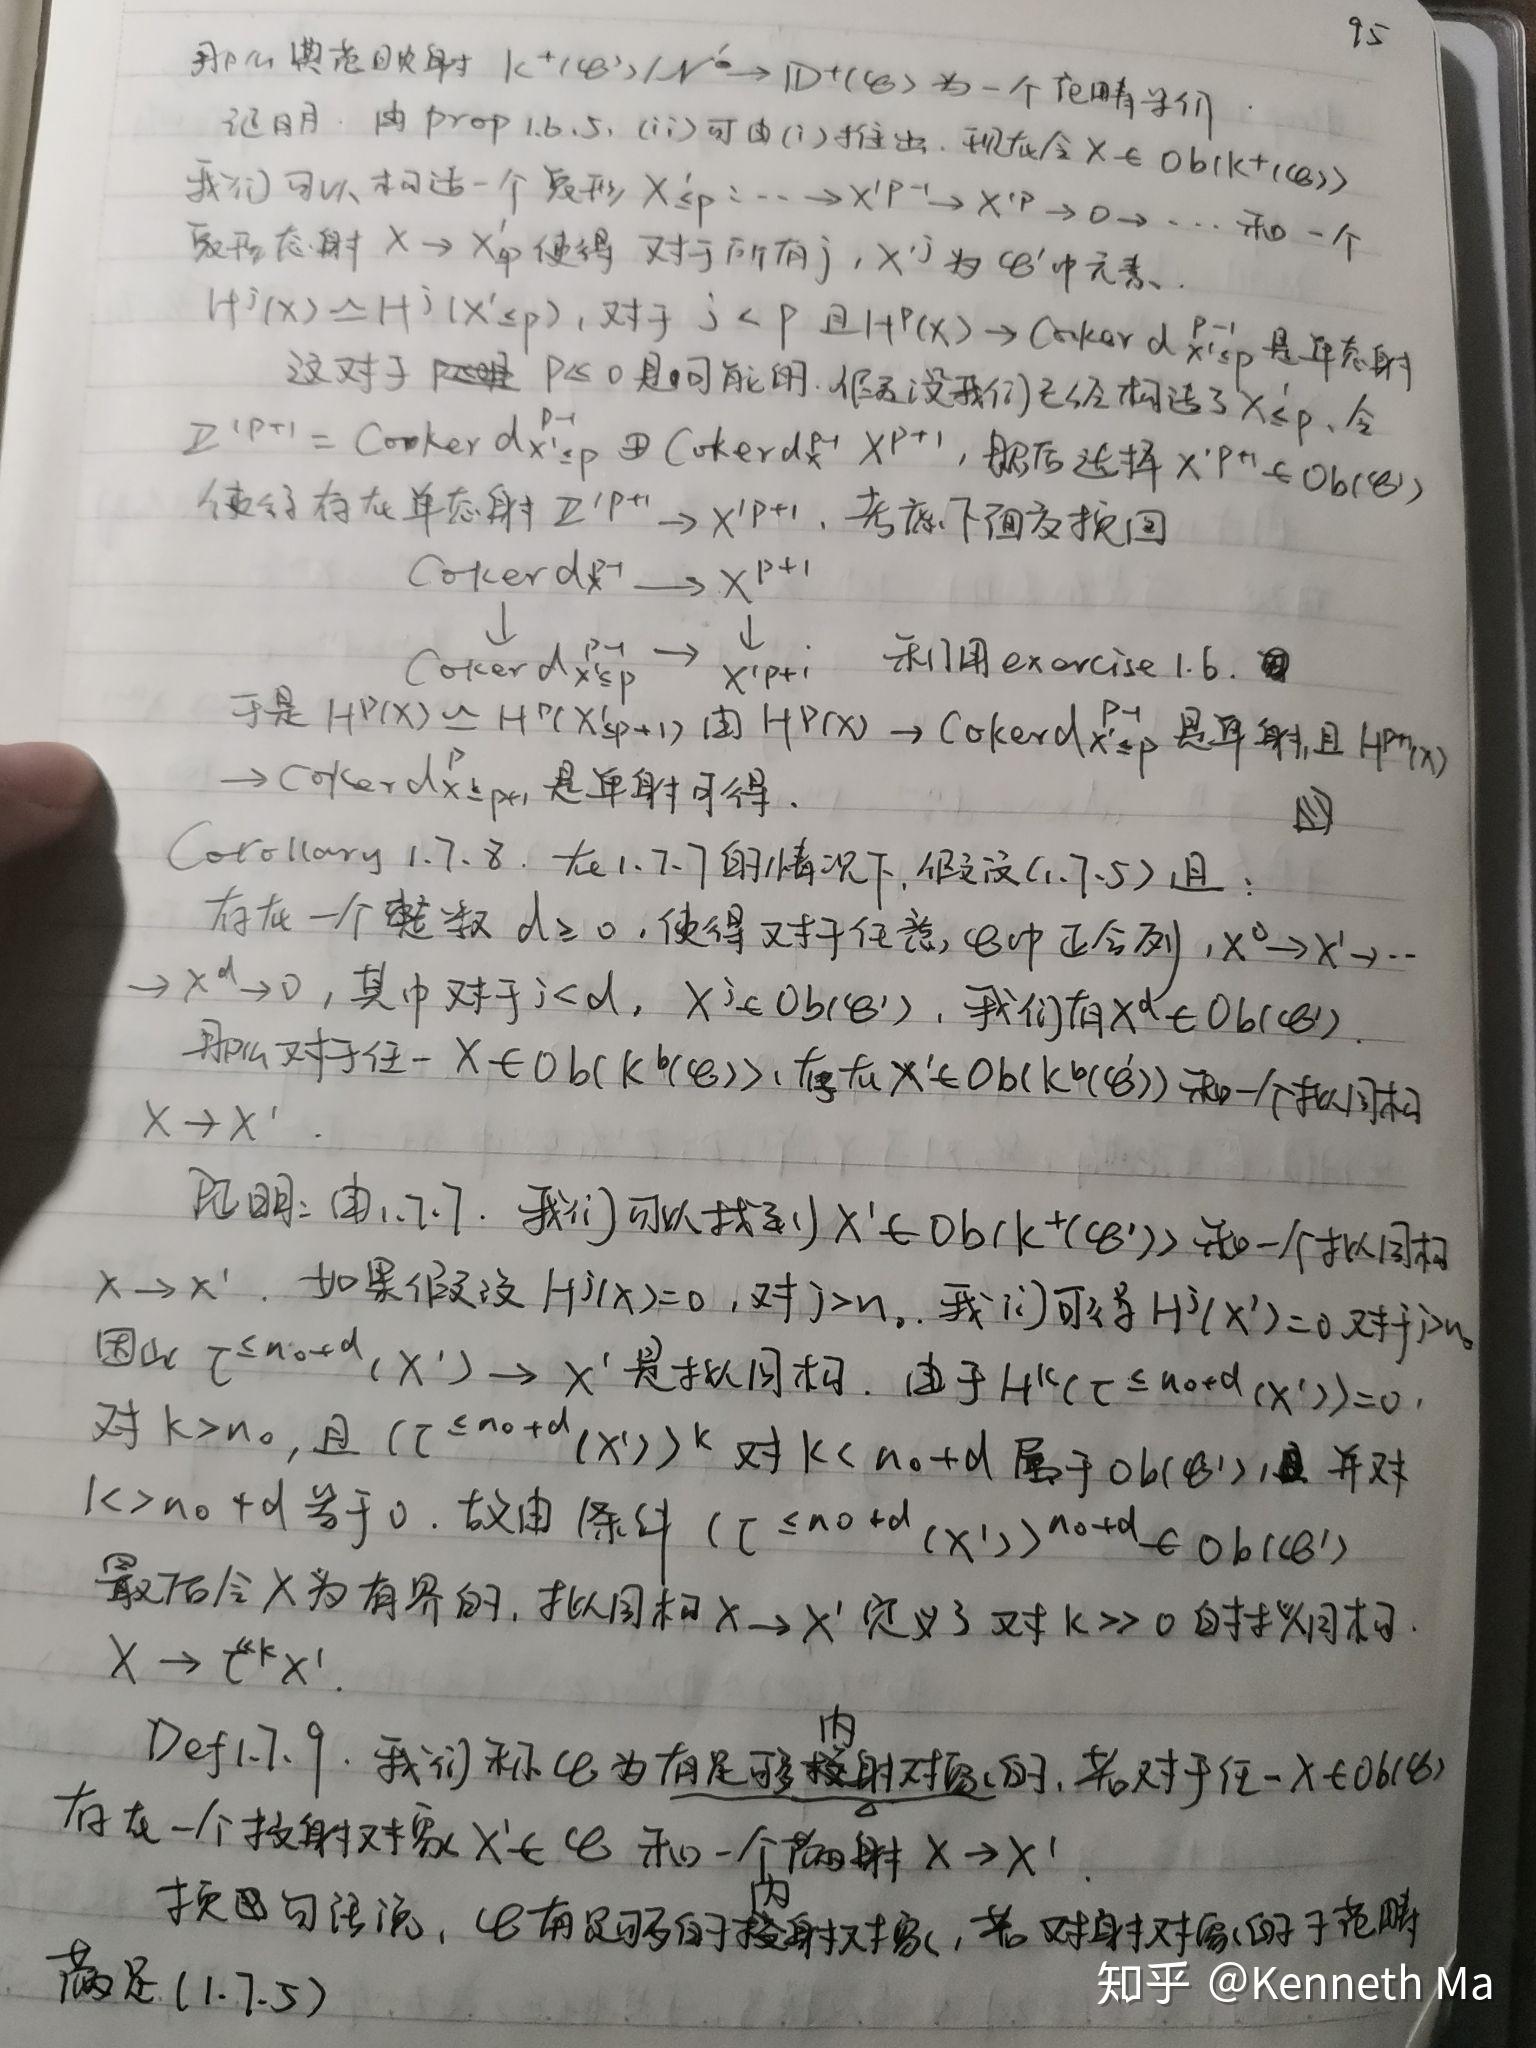 95
那么典范映射 K⁺(𝒞')/𝒩' → D⁺(𝒞) 为一个范畴等价.
证明. 由 prop 1.6.5, (ii)可由(i)推出. 现在令 X ∈ Ob(K⁺(𝒞))
我们可以构造一个复形 X'≤p : ⋯ → X'^{p-1} → X'^p → 0 → ⋯ 和一个
复形态射 X → X'≤p 使得 对于所有 j, X'^j 为 𝒞' 中元素.
H^j(X) ≃ H^j(X'≤p), 对于 j < p 且 H^p(X) → Coker d^{p-1}_{X'≤p} 是单态射
这对于 p ≤ 0 是可能的. 假设我们已经构造了 X'≤p, 令
Z'^{p+1} = Coker d^{p-1}_{X'≤p} ⊕ Coker d^{p-1}_X X^{p+1}, 然后选择 X'^{p+1} ∈ Ob(𝒞')
使得存在单态射 Z'^{p+1} → X'^{p+1}. 考虑下面交换图
Coker d^{p-1}_X → X^{p+1}
↓ ↓
Coker d^{p-1}_{X'≤p} → X'^{p+1} 利用 exercise 1.6.
于是 H^p(X) ≃ H^p(X'≤p+1) 由 H^p(X) → Coker d^{p-1}_{X'≤p} 是单射, 且 H^{p+1}(X)
→ Coker d^p_{X'≤p+1} 是单射可得.
Corollary 1.7.8. 在 1.7.7 的情况下, 假设 (1.7.5) 且:
存在一个整数 d ≥ 0, 使得对于任意, 𝒞 中正合列, X⁰ → X¹ → ⋯
→ X^d → 0, 其中对于 j < d, X^j ∈ Ob(𝒞'), 我们有 X^d ∈ Ob(𝒞').
那么对于任一 X ∈ Ob(K^b(𝒞)), 存在 X' ∈ Ob(K^b(𝒞')) 和一个拟同构
X → X'.
证明: 由 1.7.7. 我们可以找到 X' ∈ Ob(K⁺(𝒞')) 和一个拟同构
X → X'. 如果假设 H^j(X) = 0, 对 j > n₀. 我们可得 H^j(X') = 0 对于 j > n₀
因此 τ^{≤n₀+d}(X') → X' 是拟同构. 由于 H^k(τ^{≤n₀+d}(X')) = 0,
对 k > n₀, 且 (τ^{≤n₀+d}(X'))^k 对 k < n₀+d 属于 Ob(𝒞'), 并对
k > n₀+d 等于 0. 故由条件 (τ^{≤n₀+d}(X'))^{n₀+d} ∈ Ob(𝒞')
最后令 X 为有界的, 拟同构 X → X' 定义了对 k >> 0 的拟同构.
X → τ^{≤k}X'.
Def 1.7.9. 我们称 𝒞 为有足够内射对象的, 若对于任一 X ∈ Ob(𝒞)
存在一个投射对象 X' ∈ 𝒞 和一个满射 X → X'.
换句话说, 𝒞 有足够的内射对象, 若对射对象的子范畴
满足 (1.7.5)
知乎 @Kenneth Ma